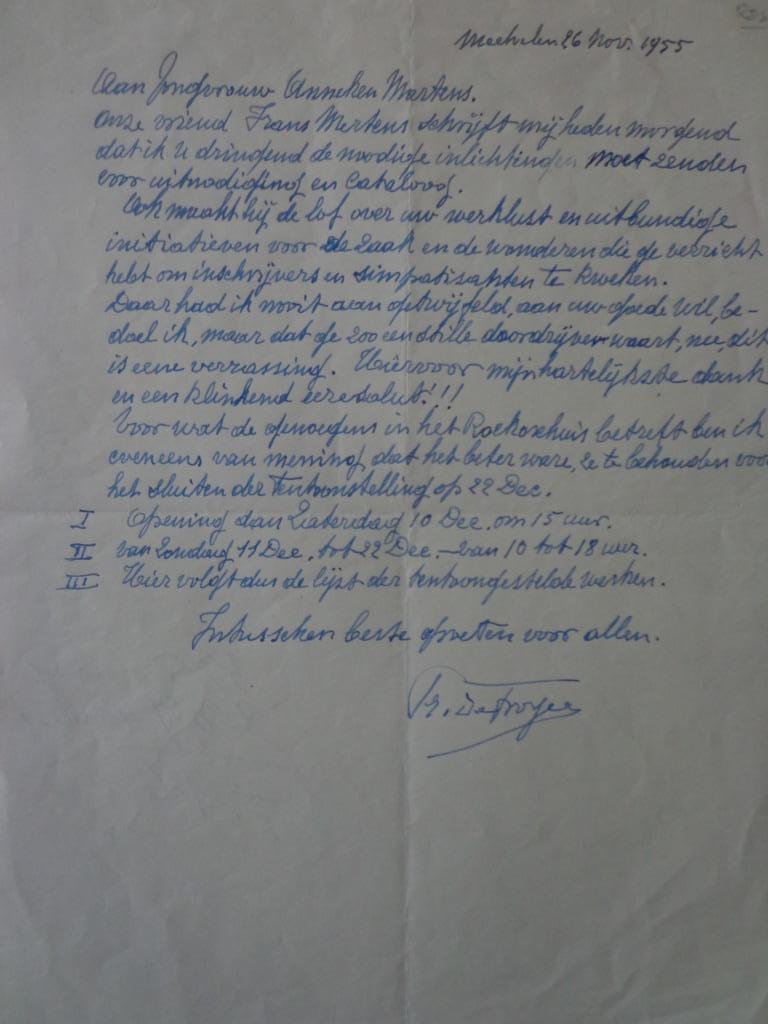 Mechelen 26 Nov. 1955
Aan Jongvrouw Anneken Mertens.
Onze vriend Frans Mertens schrijft mij heden morgend
dat ik u dringend de noodige inlichtingen moet zenden
voor uitnodiging en Cataloog.
Ook maakt hij de lof over uw werklust en uitbundige
initiatieven voor de zaak en de wonderen die ge verricht
hebt om inschrijvers en simpatisanten te kweken.
Daar had ik nooit aan getwijfeld, aan uw goede wil, be-
doel ik, maar dat ge zoo een stille doordrijver waart, nee, dit
is eene verrassing. Hiervoor mijn hartelijkste dank
en een klinkend eeresaluut!!!
Voor wat de genoegens in het Rockoxhuis betreft ben ik
eveneens van mening dat het beter ware, ze te behouden voor
het sluiten der tentoonstelling op 22 Dec.
I Opening dan Zaterdag 10 Dec. om 15 uur.
II van Zondag 11 Dec. tot 22 Dec. - van 10 tot 18 uur.
III Hier volgt dus de lijst der tentoongestelde werken.
Intusschen beste groeten voor allen.
Pr. De Troyer